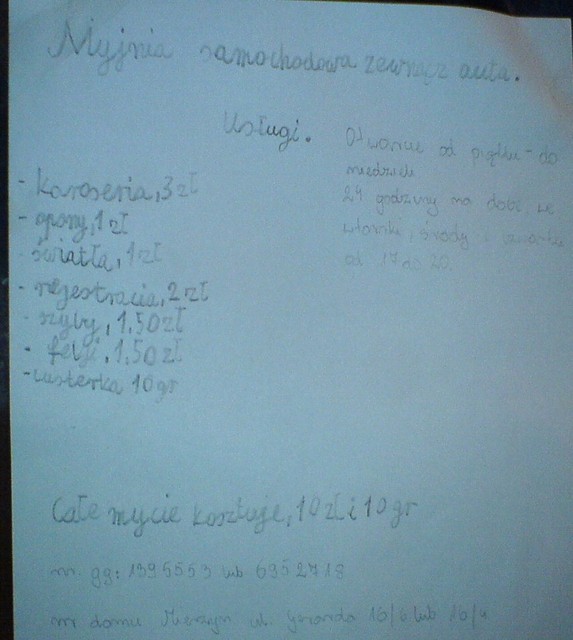 Myjnia samochodowa zewnącz auta.
Usługi.
Otwarcie od piątku - do
niedzieli
24 godziny na dobę, we
wtorki, środy i czwartki
od 17 do 20.
- karoseria, 3 zł
- opony, 1 zł
- światła, 1 zł
- rejestracia, 2 zł
- szyby, 1,50 zł
- felgi, 1,50 zł
- lusterka 10 gr
Całe mycie kosztuje, 10 zł i 10 gr
nr. gg: 1395553 lub 6952718
nr domu Mierzyn ul. 16/6 lub 16/4